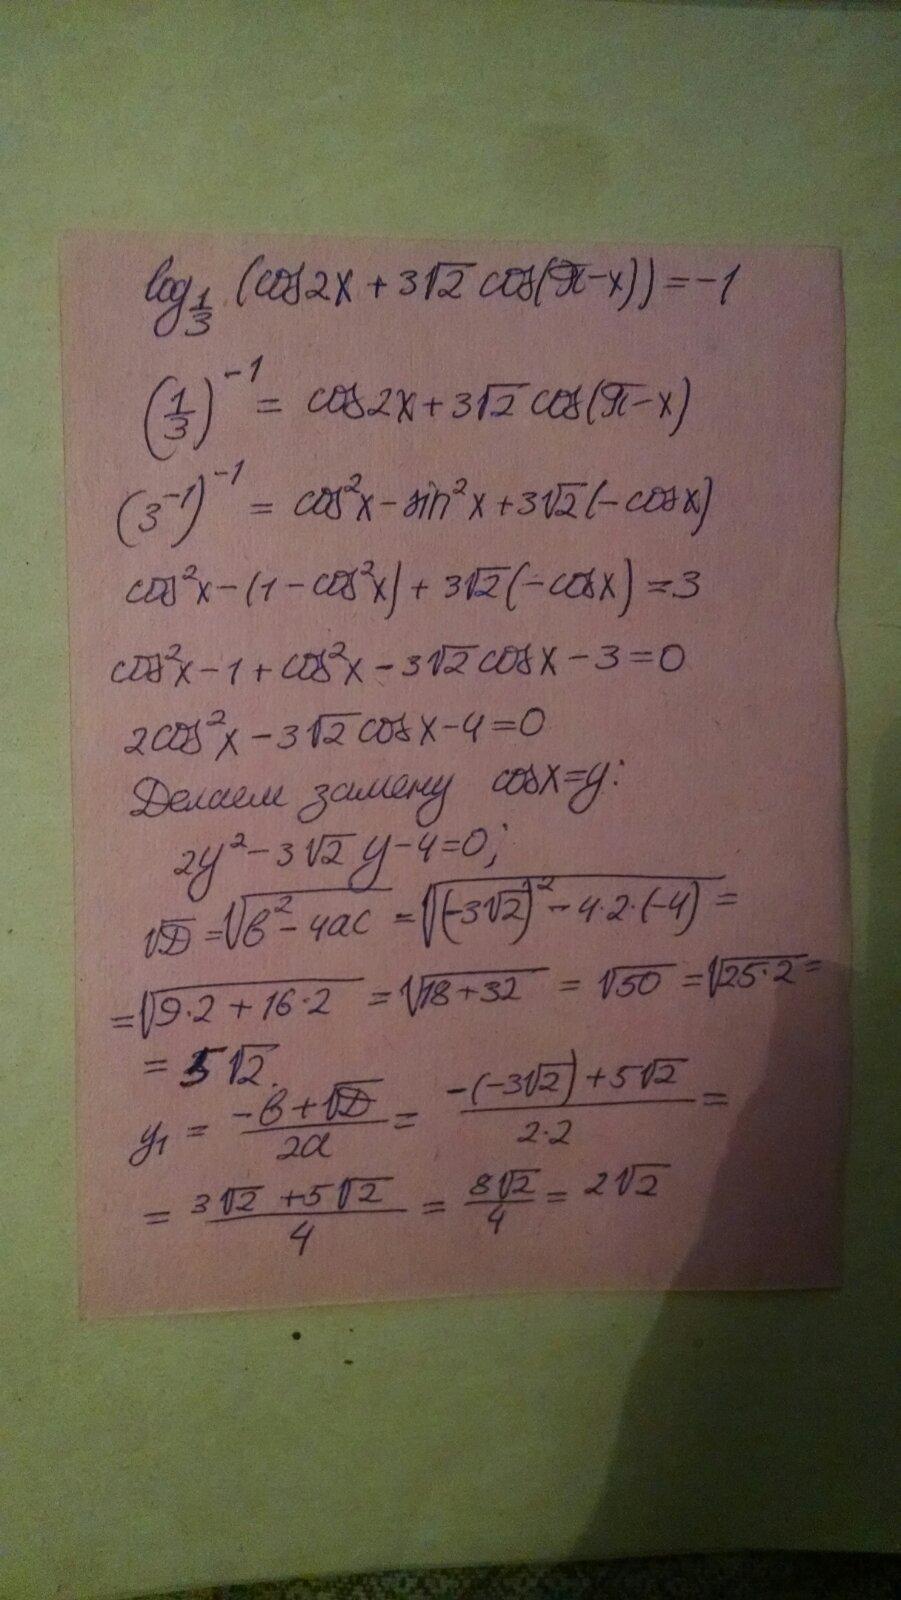 log_{1/3} (cos2x + 3√2 cos(π-x)) = -1
(1/3)^{-1} = cos2x + 3√2 cos(π-x)
(3^{-1})^{-1} = cos²x - sin²x + 3√2(-cosx)
cos²x - (1 - cos²x) + 3√2(-cosx) = 3
cos²x - 1 + cos²x - 3√2 cosx - 3 = 0
2cos²x - 3√2 cosx - 4 = 0
Делаем замену cosx=y:
2y² - 3√2 y - 4 = 0;
√D = √(b² - 4ac) = √((-3√2)² - 4·2·(-4)) =
= √(9·2 + 16·2) = √(18+32) = √50 = √(25·2) =
= 5√2.
y₁ = (-b+√D)/2a = (-(-3√2)+5√2)/2·2 =
= (3√2 + 5√2)/4 = 8√2/4 = 2√2